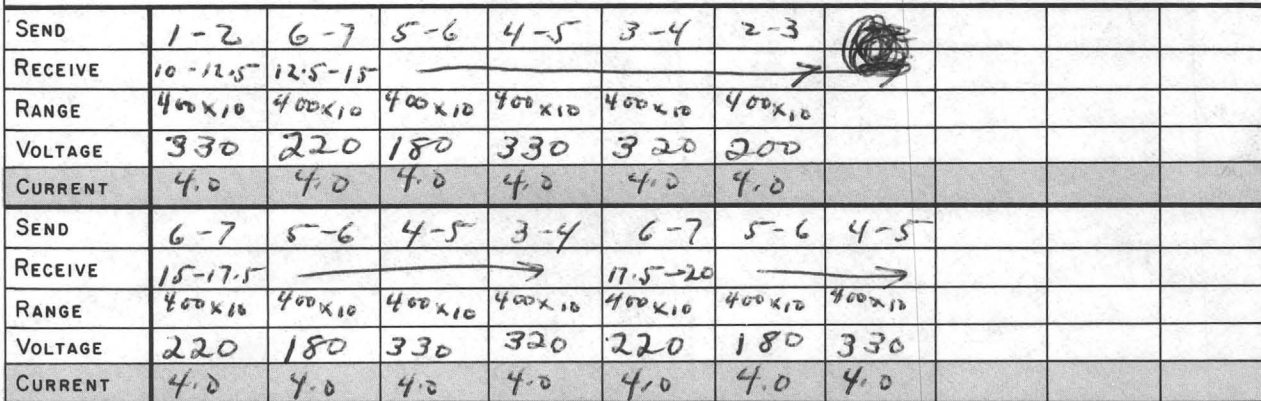 SEND 1-2 6-7 5-6 4-5 3-4 2-3
RECEIVE 10-12.5 12.5-15
RANGE 400x10 400x10 400x10 400x10 400x10 400x10
VOLTAGE 330 220 180 330 320 200
CURRENT 4.0 4.0 4.0 4.0 4.0 4.0
SEND 6-7 5-6 4-5 3-4 6-7 5-6 4-5
RECEIVE 15-17.5 17.5-20
RANGE 400x10 400x10 400x10 400x10 400x10 400x10 400x10
VOLTAGE 220 180 330 320 220 180 330
CURRENT 4.0 4.0 4.0 4.0 4.0 4.0 4.0